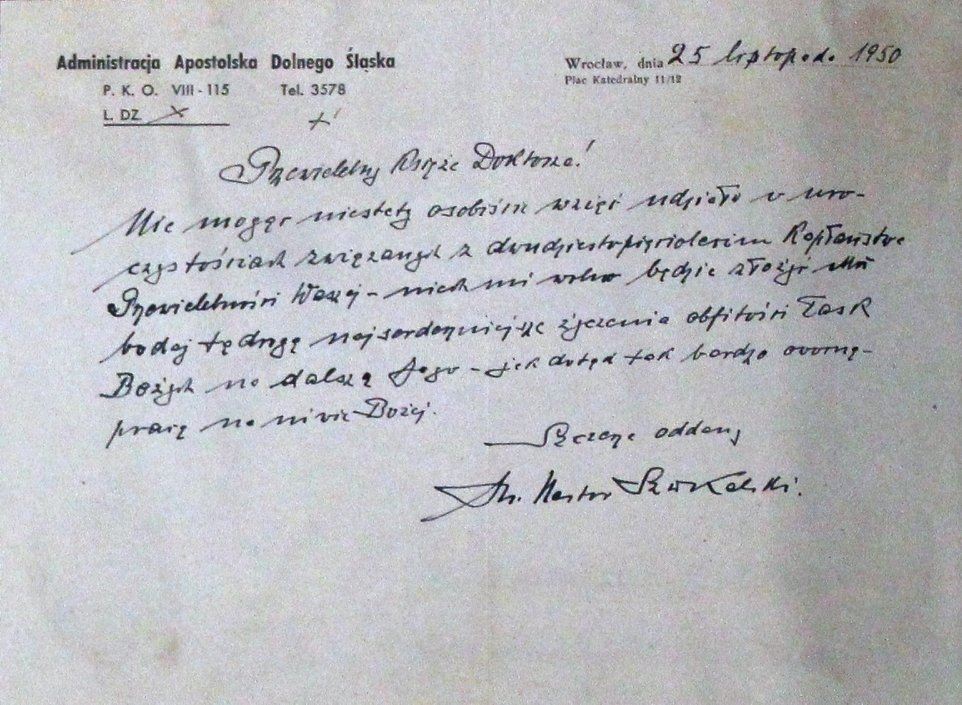 Administracja Apostolska Dolnego Śląska
P. K. O. VIII - 115 Tel. 3578
L. DZ. x
Wrocław, dnia 25 listopada 1950
Plac Katedralny 11/12
Przewielebny Księże Doktorze!
Nie mogąc niestety osobiście wziąć udziału w uro-
czystościach związanych z dwudziestopięcioleciem Kapłaństwa
Przewielebności Waszej – niech mi wolno będzie złożyć Mu
bodaj tę drogą najserdeczniejsze życzenia obfitości Łask
Bożych na dalszą Jego – jak dotąd tak bardzo owocną –
pracę na niwie Bożej.
Szczerze oddany
Ks. Szwkalski.